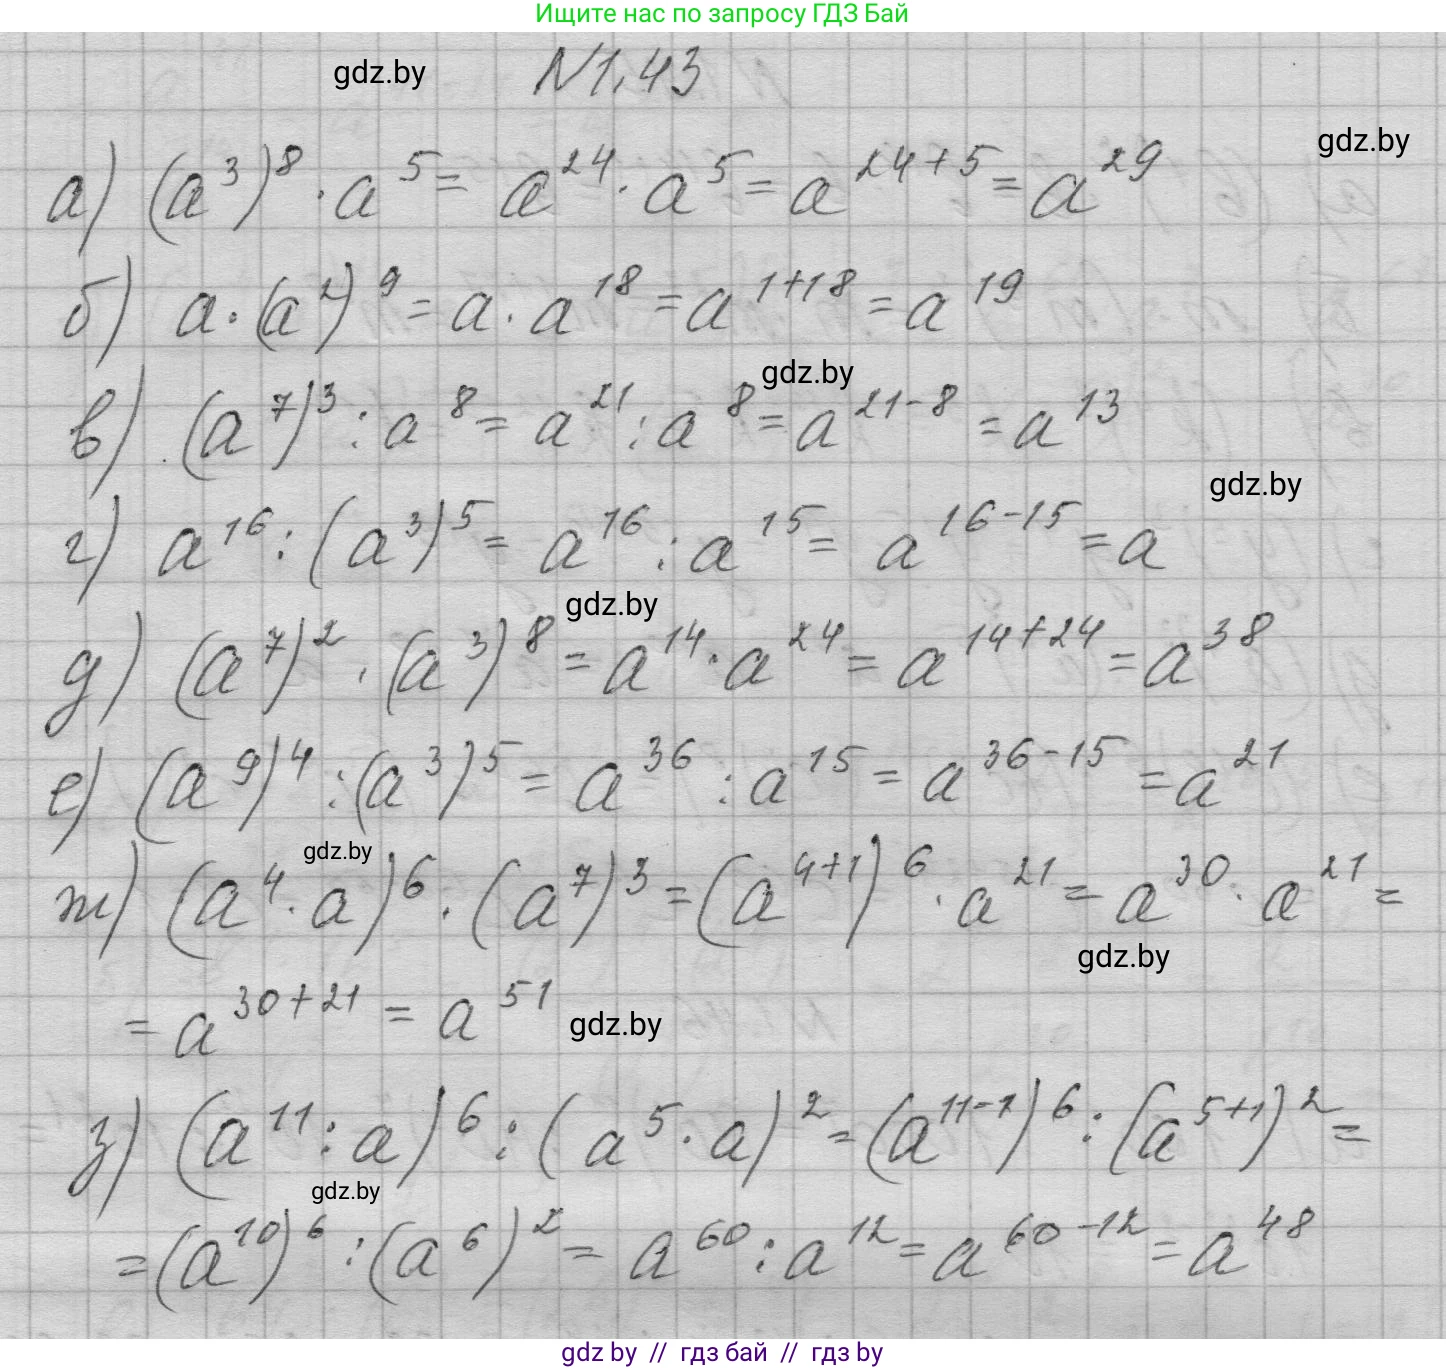 Ищите нас по запросу ГДЗ Бай
gdz.by
N1,43
gdz.by
а) (a³)⁸ · a⁵ = a²⁴ · a⁵ = a²⁴⁺⁵ = a²⁹
б) a · (a²)⁹ = a · a¹⁸ = a¹⁺¹⁸ = a¹⁹
gdz.by
в) (a⁷)³ : a⁸ = a²¹ : a⁸ = a²¹⁻⁸ = a¹³
gdz.by
г) a¹⁶ : (a³)⁵ = a¹⁶ : a¹⁵ = a¹⁶⁻¹⁵ = a
gdz.by
д) (a⁷)² · (a³)⁸ = a¹⁴ · a²⁴ = a¹⁴⁺²⁴ = a³⁸
е) (a⁹)⁴ : (a³)⁵ = a³⁶ : a¹⁵ = a³⁶⁻¹⁵ = a²¹
gdz.by
ж) (a⁴ · a)⁶ · (a⁷)³ = (a⁴⁺¹)⁶ · a²¹ = a³⁰ · a²¹ =
gdz.by
= a³⁰⁺²¹ = a⁵¹
gdz.by
з) (a¹¹ : a)⁶ : (a⁵ · a)² = (a¹¹⁻¹)⁶ : (a⁵⁺¹)² =
gdz.by
= (a¹⁰)⁶ : (a⁶)² = a⁶⁰ : a¹² = a⁶⁰⁻¹² = a⁴⁸
gdz by // гдз бай // гдз by